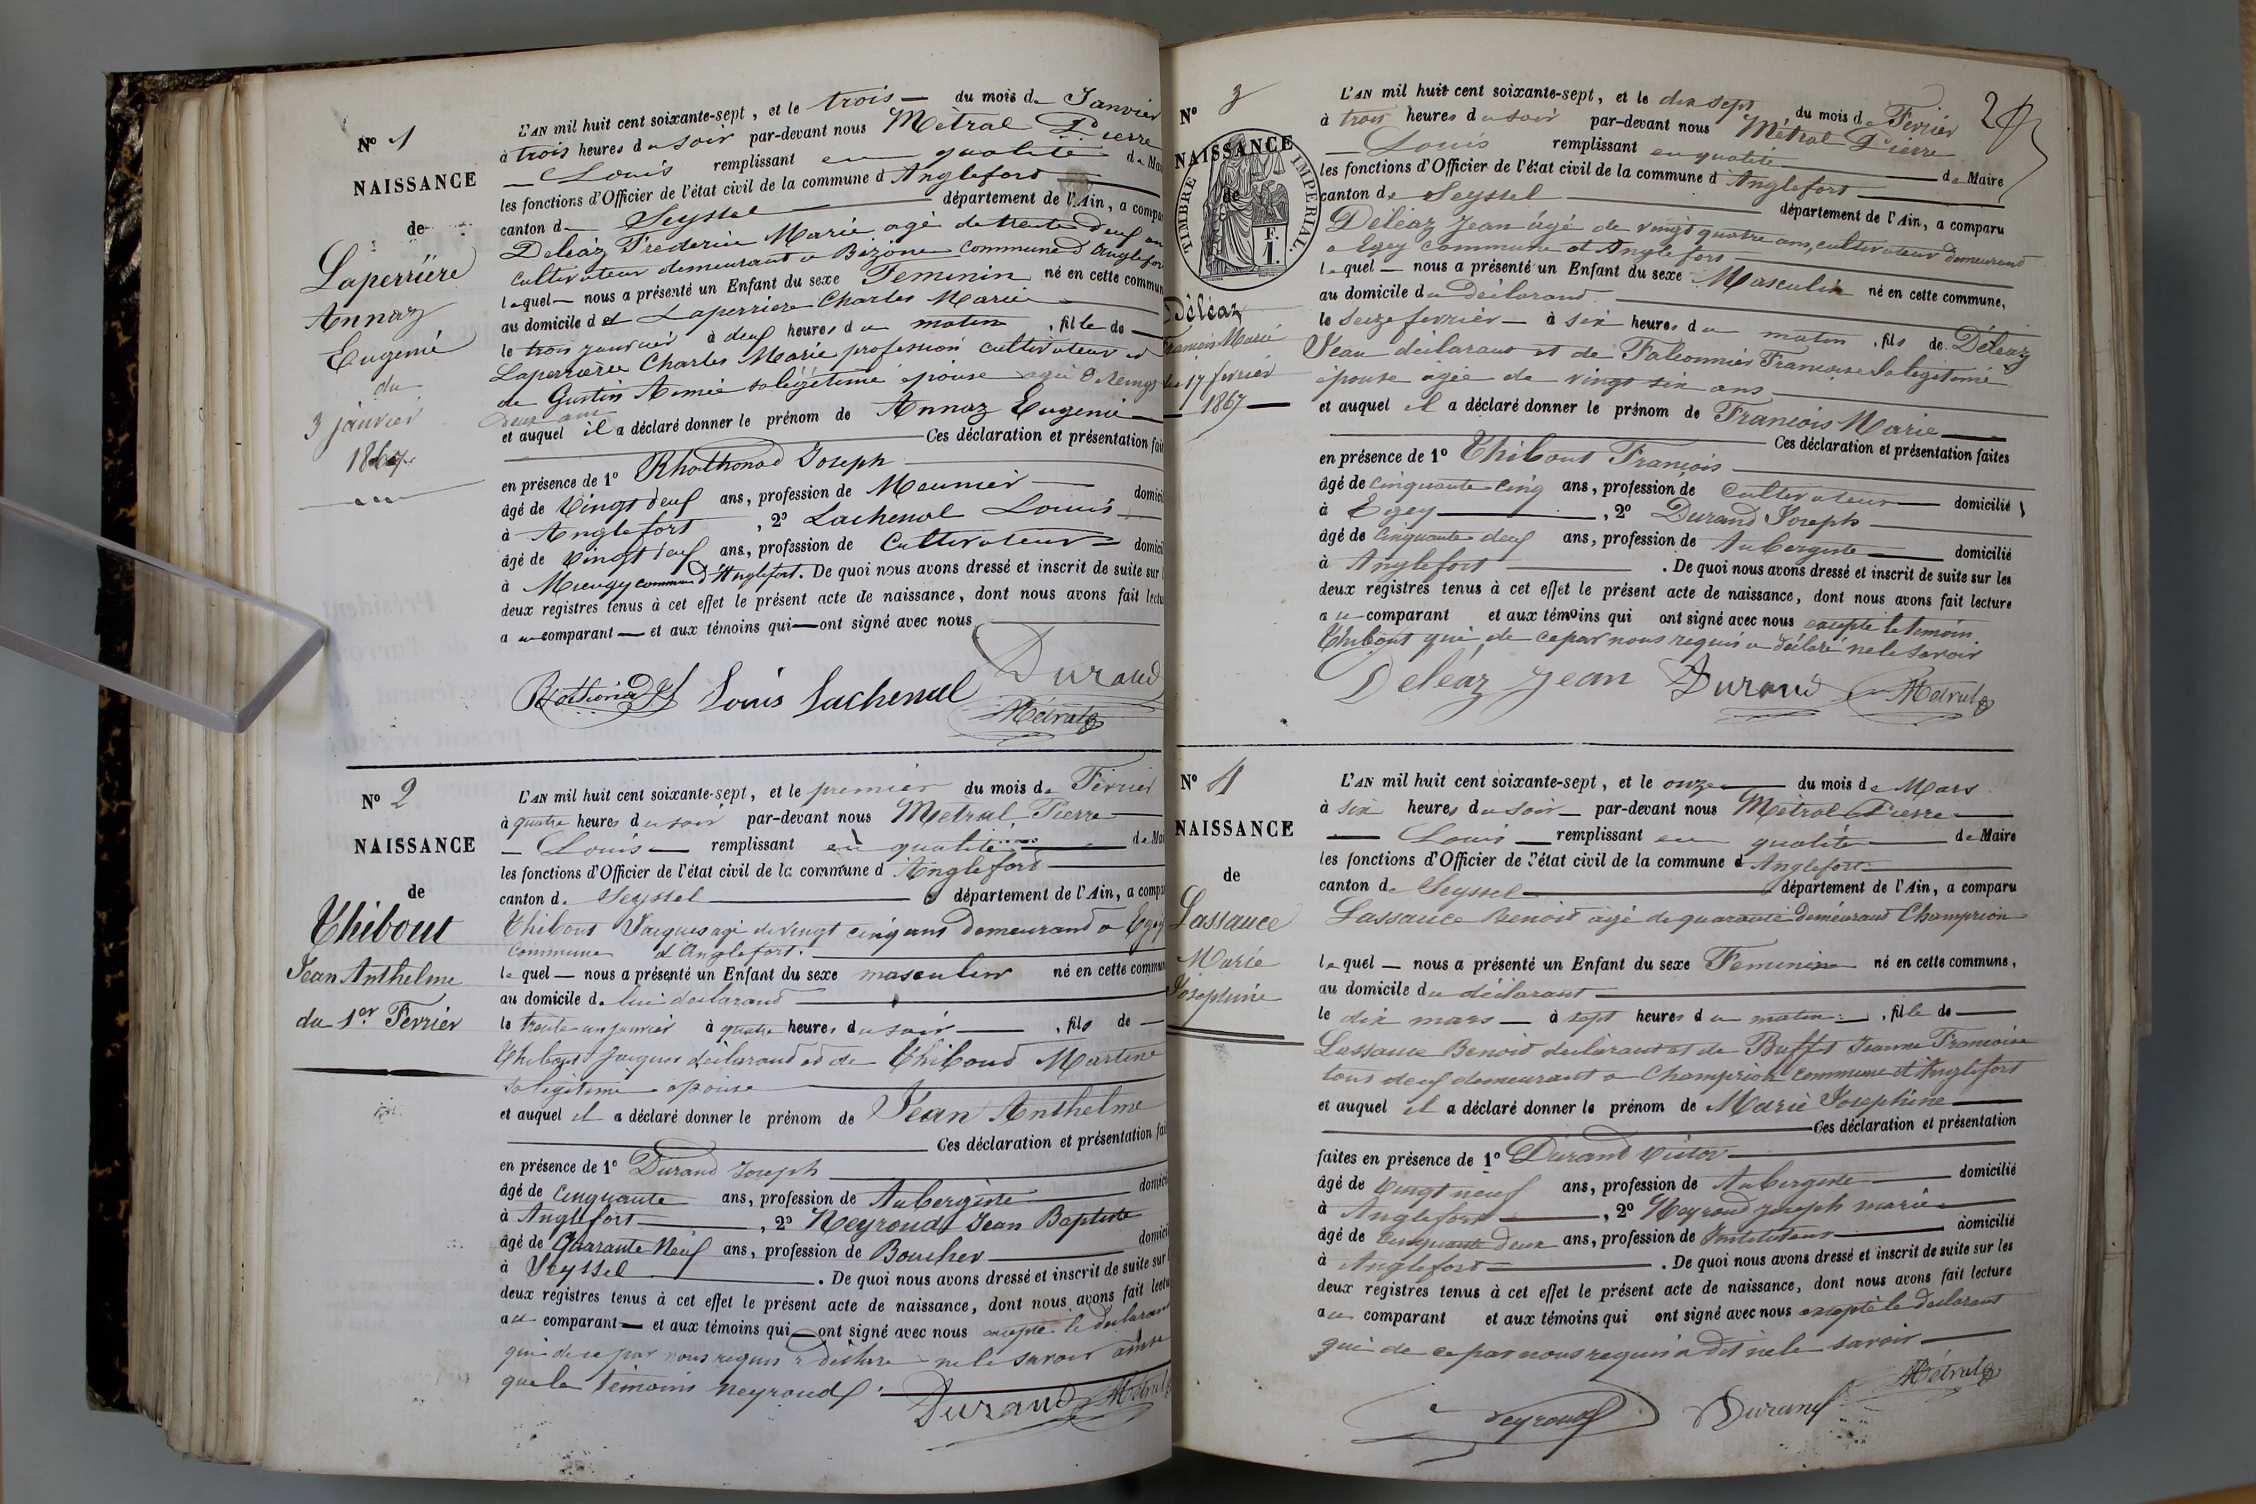 Nº 1
NAISSANCE
de
Laperrière
Annaz
Eugenie
du
3 janvier
1867
L'AN mil huit cent soixante-sept, et le trois du mois de Janvier
à trois heures du soir par-devant nous Métral Pierre
Louis remplissant en qualité de Mai
les fonctions d'Officier de l'état civil de la commune d'Anglefort
canton de Seyssel département de l'Ain, a compa
Deléaz Frederic Marie agé de trente deuf an
cultivateur demeurant a Bezonne commune d'Anglefor
lequel nous a présenté un Enfant du sexe Feminin né en cette commun
au domicile de Laperriere Charles Marie
le trois janvier à deuf heures du matin, fille de
Laperriere Charles Marie profession cultivateur et
de Gustin Aimée sa légitime épouse agée de vingt
deux ans
et auquel il a déclaré donner le prénom de Annaz Eugenie
Ces déclaration et présentation fai
en présence de 1º Rhothonod Joseph
âgé de Vingt deuf ans, profession de Meunier domici
à Anglefort, 2º Lachenal Louis
âgé de vingt neuf ans, profession de Cultivateur domici
à Mieugy commune d'Anglefort. De quoi nous avons dressé et inscrit de suite sur l
deux registres tenus à cet effet le présent acte de naissance, dont nous avons fait lectu
au comparant et aux témoins qui ont signé avec nous
Durand
Louis Lachenal
Métral
Nº 2
NAISSANCE
de
Thibout
Jean Anthelme
du 1er Fevrier
L'AN mil huit cent soixante-sept, et le premier du mois de Février
à quatre heures du soir par-devant nous Métral Pierre
Louis remplissant en qualité de Mai
les fonctions d'Officier de l'état civil de la commune d'Anglefort
canton de Seyssel département de l'Ain, a compa
Thibout Jacques agé de vingt cinq ans Demeurand a Ezey
commune d'Anglefort.
lequel nous a présenté un Enfant du sexe masculin né en cette commun
au domicile de lui declarand
le trente un janvier à quatre heures du soir, fils de
Thibout Jacques déclarand et de Thiboud Martine
sa légitime épouse
et auquel il a déclaré donner le prénom de Jean Anthelme
Ces déclaration et présentation fai
en présence de 1º Durand Joseph
âgé de Cinquante ans, profession de Aubergiste domici
à Anglefort, 2º Neyroud Jean Baptiste
âgé de Quarante Neuf ans, profession de Boucher domici
à Seyssel. De quoi nous avons dressé et inscrit de suite sur l
deux registres tenus à cet effet le présent acte de naissance, dont nous avons fait lectu
au comparant et aux témoins qui ont signé avec nous excepté le declarant
qui de ce par nous requis a déclaré ne le savoir ainsi
que le témoins Neyroud.
Durand Métral
Nº 3
NAISSANCE
de
TIMBRE IMPERIAL.
F.
1.
Déléaz
Francois Marie
du 17 fevrier
1867
L'AN mil huit cent soixante-sept, et le dix sept du mois de Fevrier
à trois heures du soir par-devant nous Métral Pierre
Louis remplissant en qualité de Maire
les fonctions d'Officier de l'état civil de la commune d'Anglefort
canton de Seyssel département de l'Ain, a comparu
Deléaz Jean âgé de vingt quatre ans, cultivateur demeurand
a Ezey commune d'Anglefort
lequel nous a présenté un Enfant du sexe Masculin né en cette commune,
au domicile du déclarand
le Seize fevrier à six heures du matin, fils de Déleaz
Jean déclarant et de Falconnier Francoise sa legitime
épouse agée de vingt six ans
et auquel il a déclaré donner le prénom de Francois Marie
Ces déclaration et présentation faites
en présence de 1º Thibout François
âgé de cinquante cinq ans, profession de cultivateur domicilié
à Ezey, 2º Durand Joseph
âgé de Cinquante deuf ans, profession de Aubergiste domicilié
à Anglefort. De quoi nous avons dressé et inscrit de suite sur les
deux registres tenus à cet effet le présent acte de naissance, dont nous avons fait lecture
au comparant et aux témoins qui ont signé avec nous excepté le témoin
Thibout qui de ce par nous requis a déclaré ne le savoir
Deléaz Jean Durand Métral
Nº 4
NAISSANCE
de
Lassauce
Marie
Josephine
L'AN mil huit cent soixante-sept, et le onze du mois de Mars
à six heures du soir par-devant nous Métral Pierre
Louis remplissant en qualité de Maire
les fonctions d'Officier de l'état civil de la commune d'Anglefort
canton de Seyssel département de l'Ain, a comparu
Lassauce Benoit agé de quarante deméurand Champrion
lequel nous a présenté un Enfant du sexe Feminin né en cette commune,
au domicile du déclarant
le dix mars à sept heures du matin, fille de
Lassauce Benoit declarant et de Buffet Jeanne Francoise
tous deuf demeurant a Champrion commune d'Anglefort
et auquel il a déclaré donner le prénom de Marie Josephine
Ces déclaration et présentation
faites en présence de 1º Durand Victor
âgé de vingt neuf ans, profession de Aubergiste domicilié
à Anglefort, 2º Neyroud Joseph marie
âgé de Cinquante deux ans, profession de Instituteur domicilié
à Anglefort. De quoi nous avons dressé et inscrit de suite sur les
deux registres tenus à cet effet le présent acte de naissance, dont nous avons fait lecture
au comparant et aux témoins qui ont signé avec nous excepté le declarant
qui de ce par nous requis a dit ne le savoir
Métral
Neyroud Durand